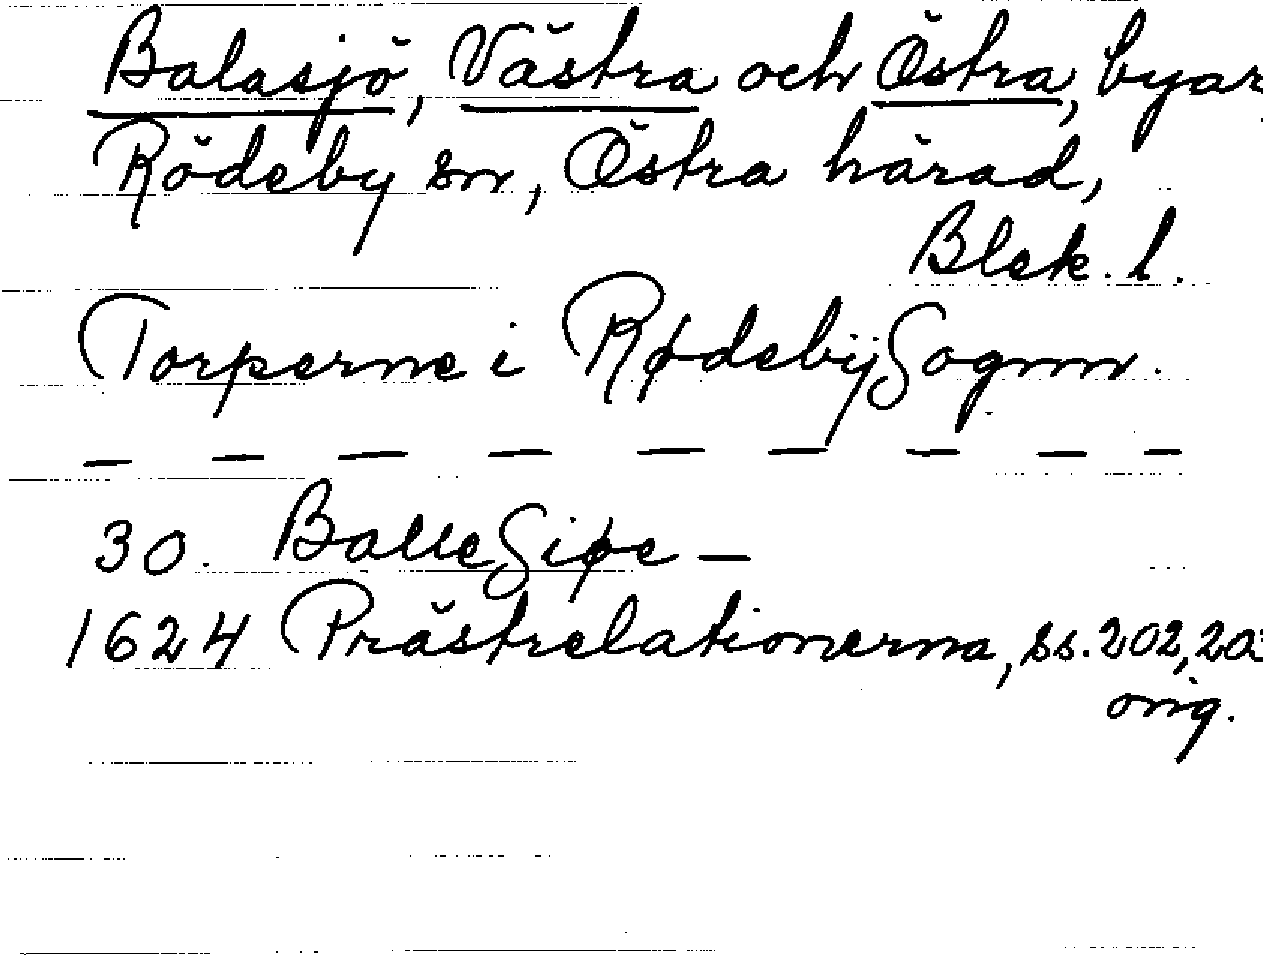 Balasjö, Västra och Östra, byar
Rödeby sn, Östra härad,
Blek. l.
Torperne i Rødebÿ Sognn.
— — — — — — — — —
30. Balle Siøe —
1624 Prästrelationerna, ss. 202, 203
orig.